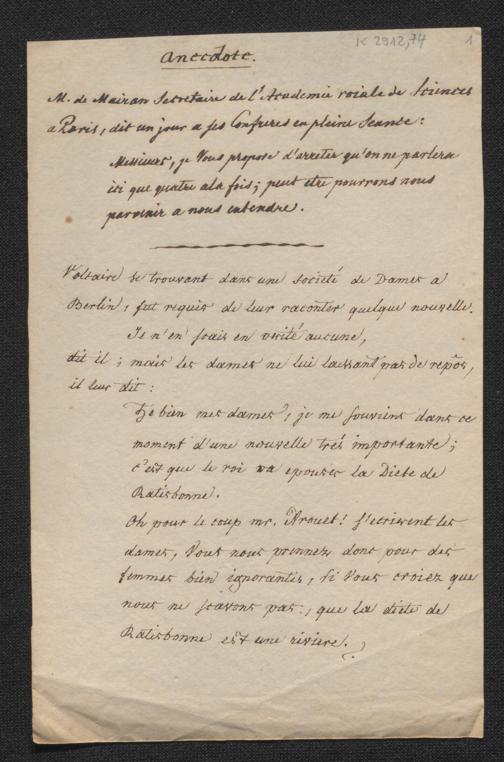 K 2912,74 1
Anecdote.
M. de Mairan Secretaire de l'Academie roiale de Sciences
a Paris, dit un jour a ses Confreres en pleine Seance:
Messieurs, je Vous propose d'arreter qu'on ne parlera
ici que quatre a la fois; peut etre pourrons nous
parvenir a nous entendre.
Voltaire se trouvant dans une societé de Dames a
Berlin, fut requis de leur raconter quelque nouvelle.
Je n'en scais en verité aucune,
dit il; mais les dames ne lui laissant pas de repos,
il leur dit:
He bien mes dames, je me souviens dans ce
moment d'une nouvelle trés importante;
c'est que le roi va epouser la Diete de
Ratisbonne.
Oh pour le coup mr. Arouet! s'ecrierent les
dames, Vous nous prennez donc pour des
femmes bien ignorantes, si Vous croiez que
nous ne scavons pas, que la diete de
Ratisbonne est une riviere.